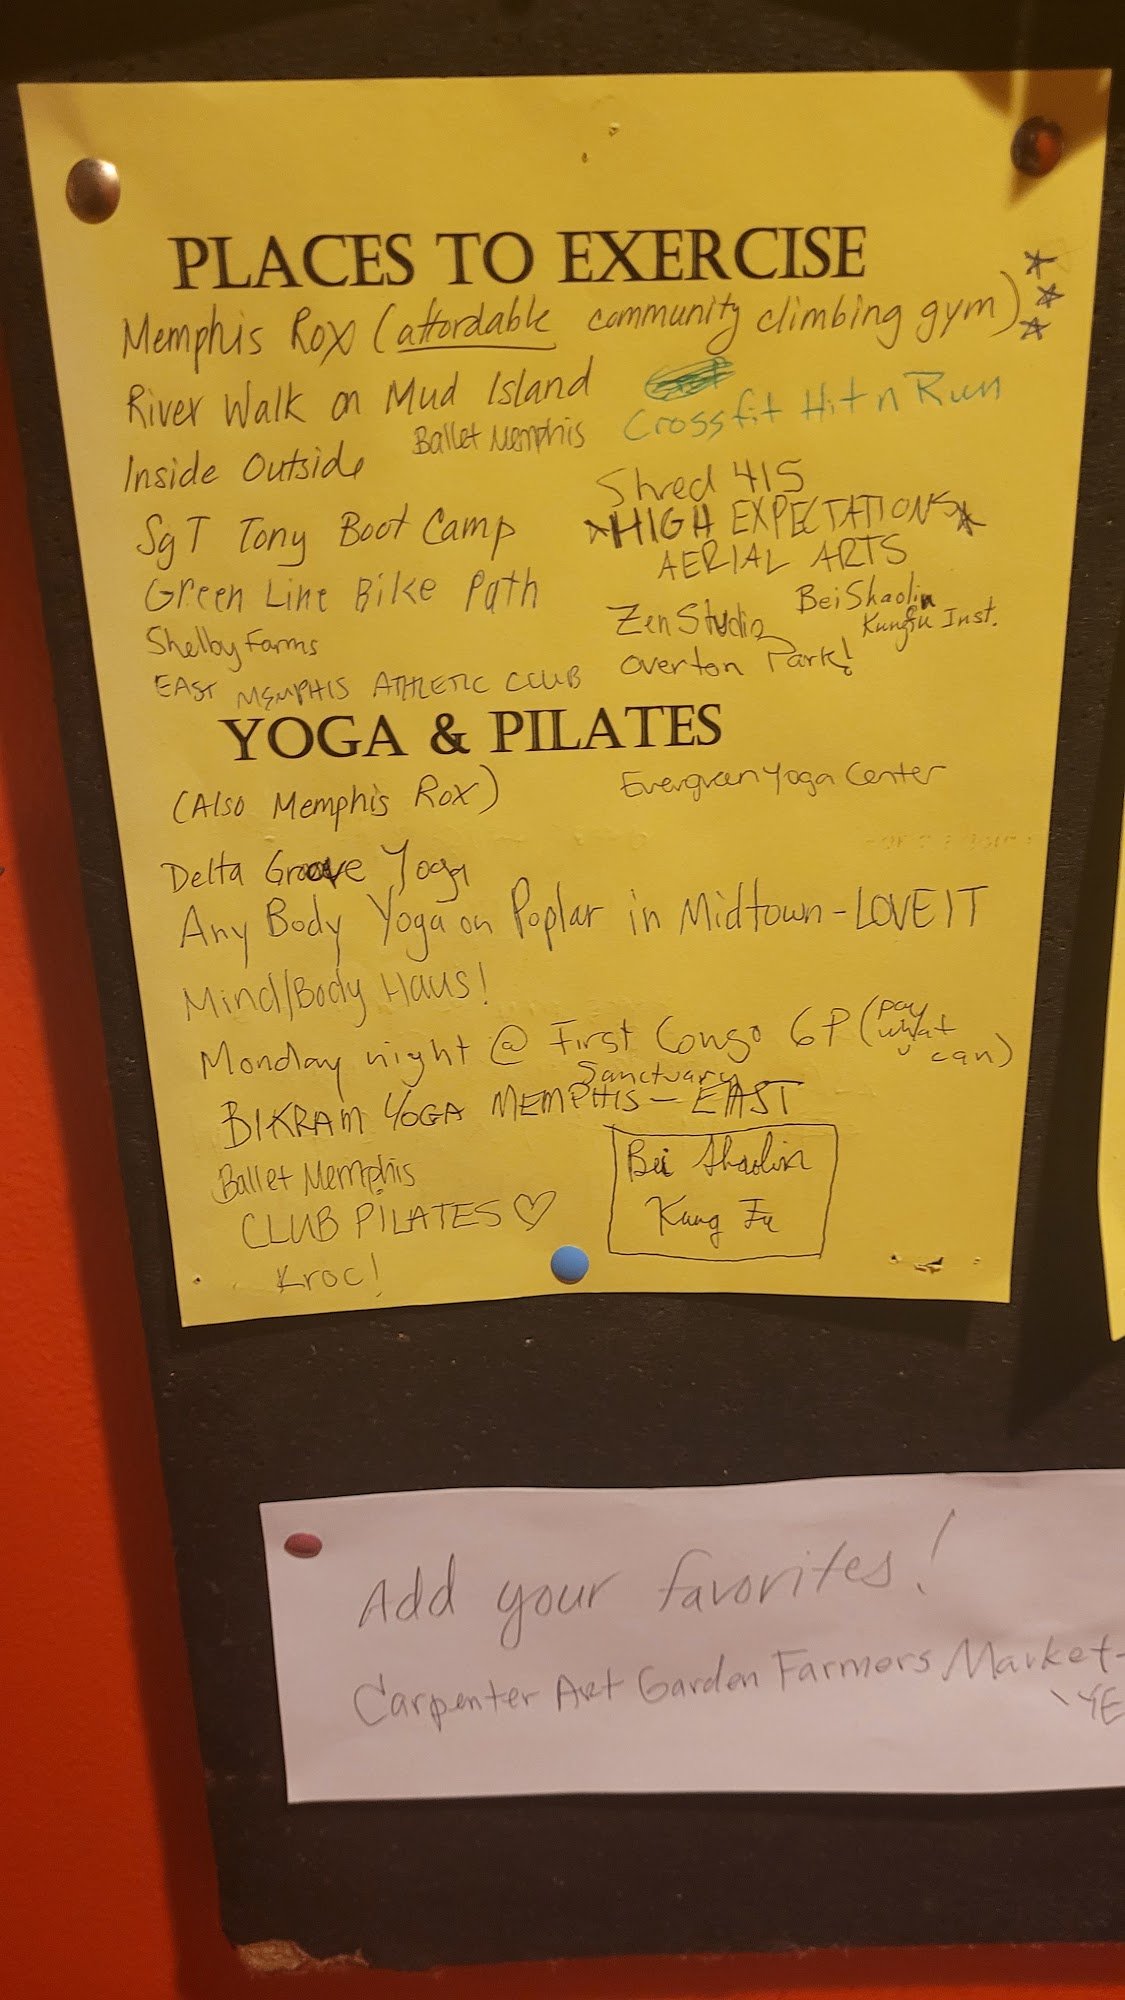 PLACES TO EXERCISE
Memphis Rox (affordable community climbing gym)
River Walk on Mud Island
Crossfit Hit n Run
Ballet Memphis
Inside Outside
Shred 415
HIGH EXPECTATIONS
AERIAL ARTS
SgT Tony Boot Camp
Green Line Bike Path
Bei Shaolin
Kungfu Inst.
Zen Studio
Shelby Farms
Overton Park!
EAST MEMPHIS ATHLETIC CLUB
YOGA & PILATES
(Also Memphis Rox)
Evergreen Yoga Center
Delta Groove Yoga
Any Body Yoga on Poplar in Midtown - LOVE IT
Mind/Body Haus!
Monday night @ First Congo 6P (pay what y can)
Sanctuary
BIKRAM YOGA MEMPHIS - EAST
Ballet Memphis
CLUB PILATES ♡
Kroc!
Bei Shaolin
Kung Fu
Add your favorites!
Carpenter Art Garden Farmers Market -
YE